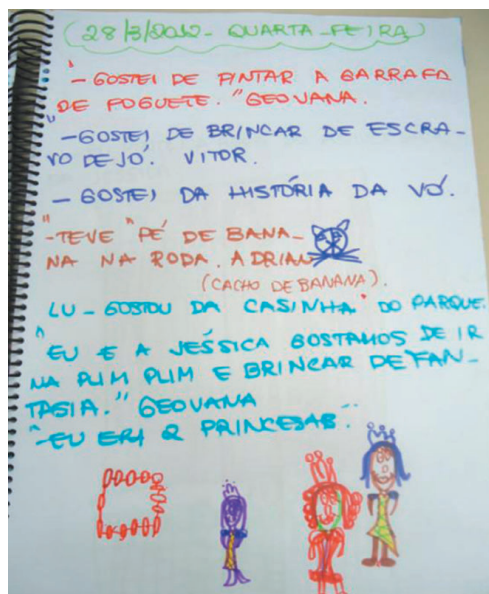 (28/3/2012 - QUARTA-FEIRA)
"- GOSTEI DE PINTAR A GARRAFA
DE FOGUETE." GEOVANA.
"- GOSTEI DE BRINCAR DE ESCRA-
VO DE JÓ". VITOR.
- GOSTEI DA HISTÓRIA DA VÓ.
"- TEVE "PÉ DE BANA-
NA NA RODA. ADRIAN
(CACHO DE BANANA).
LU - GOSTOU DA CASINHA DO PARQUE.
"EU E A JÉSSICA GOSTAMOS DE IR
NA PLIM PLIM E BRINCAR DE FAN-
TASIA." GEOVANA
"- EU ERA PRINCESA".